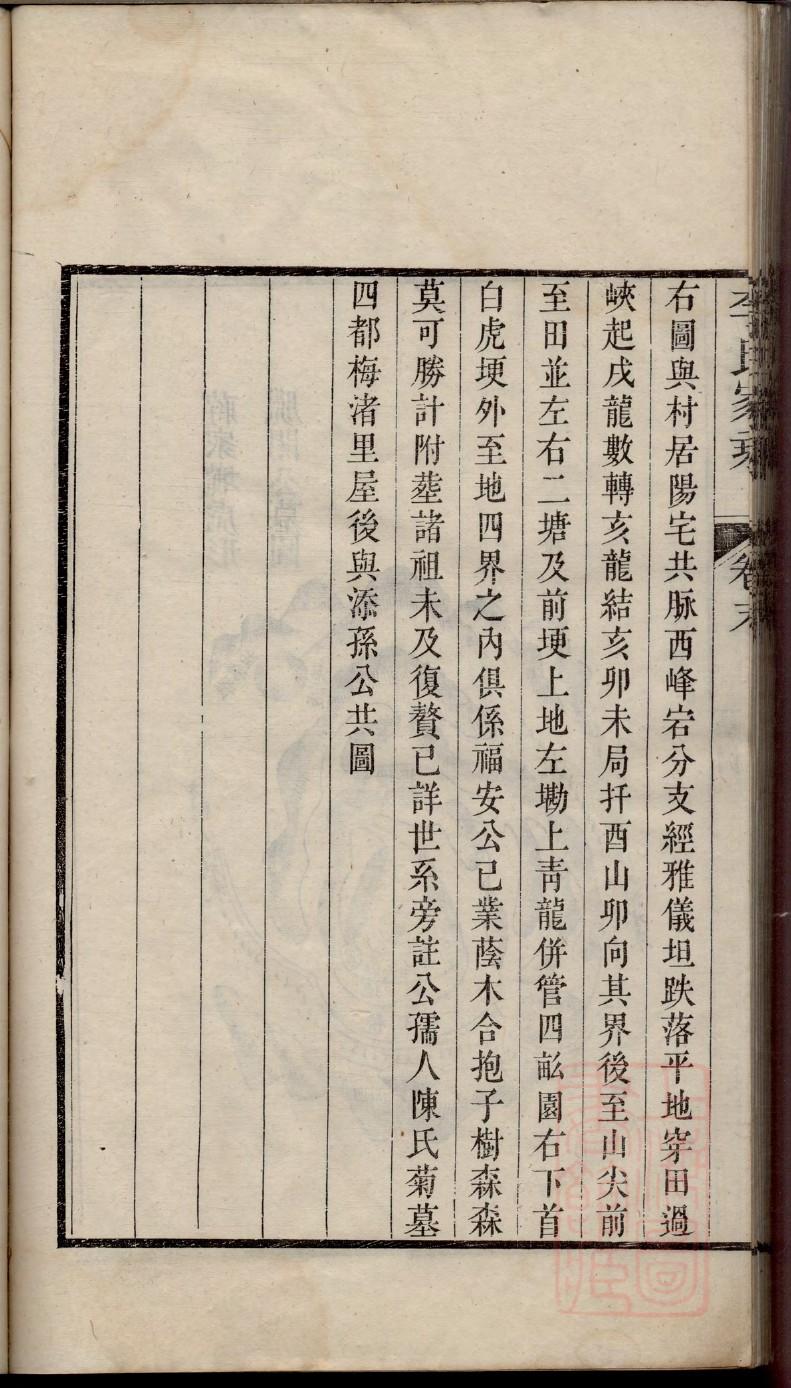 李氏家乘 卷末
右圖與村居陽宅共脉西峰宕分支經雅儀坦跌落平地穿田過
峽起戌龍數轉亥龍結亥卯未局扦酉山卯向其界後至山尖前
至田並左右二塘及前埂上地左塝上靑龍併管四畝園右下首
白虎埂外至地四界之內俱係福安公己業蔭木合抱子樹森森
莫可勝計附塟諸祖未及復贅已詳世系旁註公孺人陳氏菊墓
四都梅渚里屋後與添孫公共圖